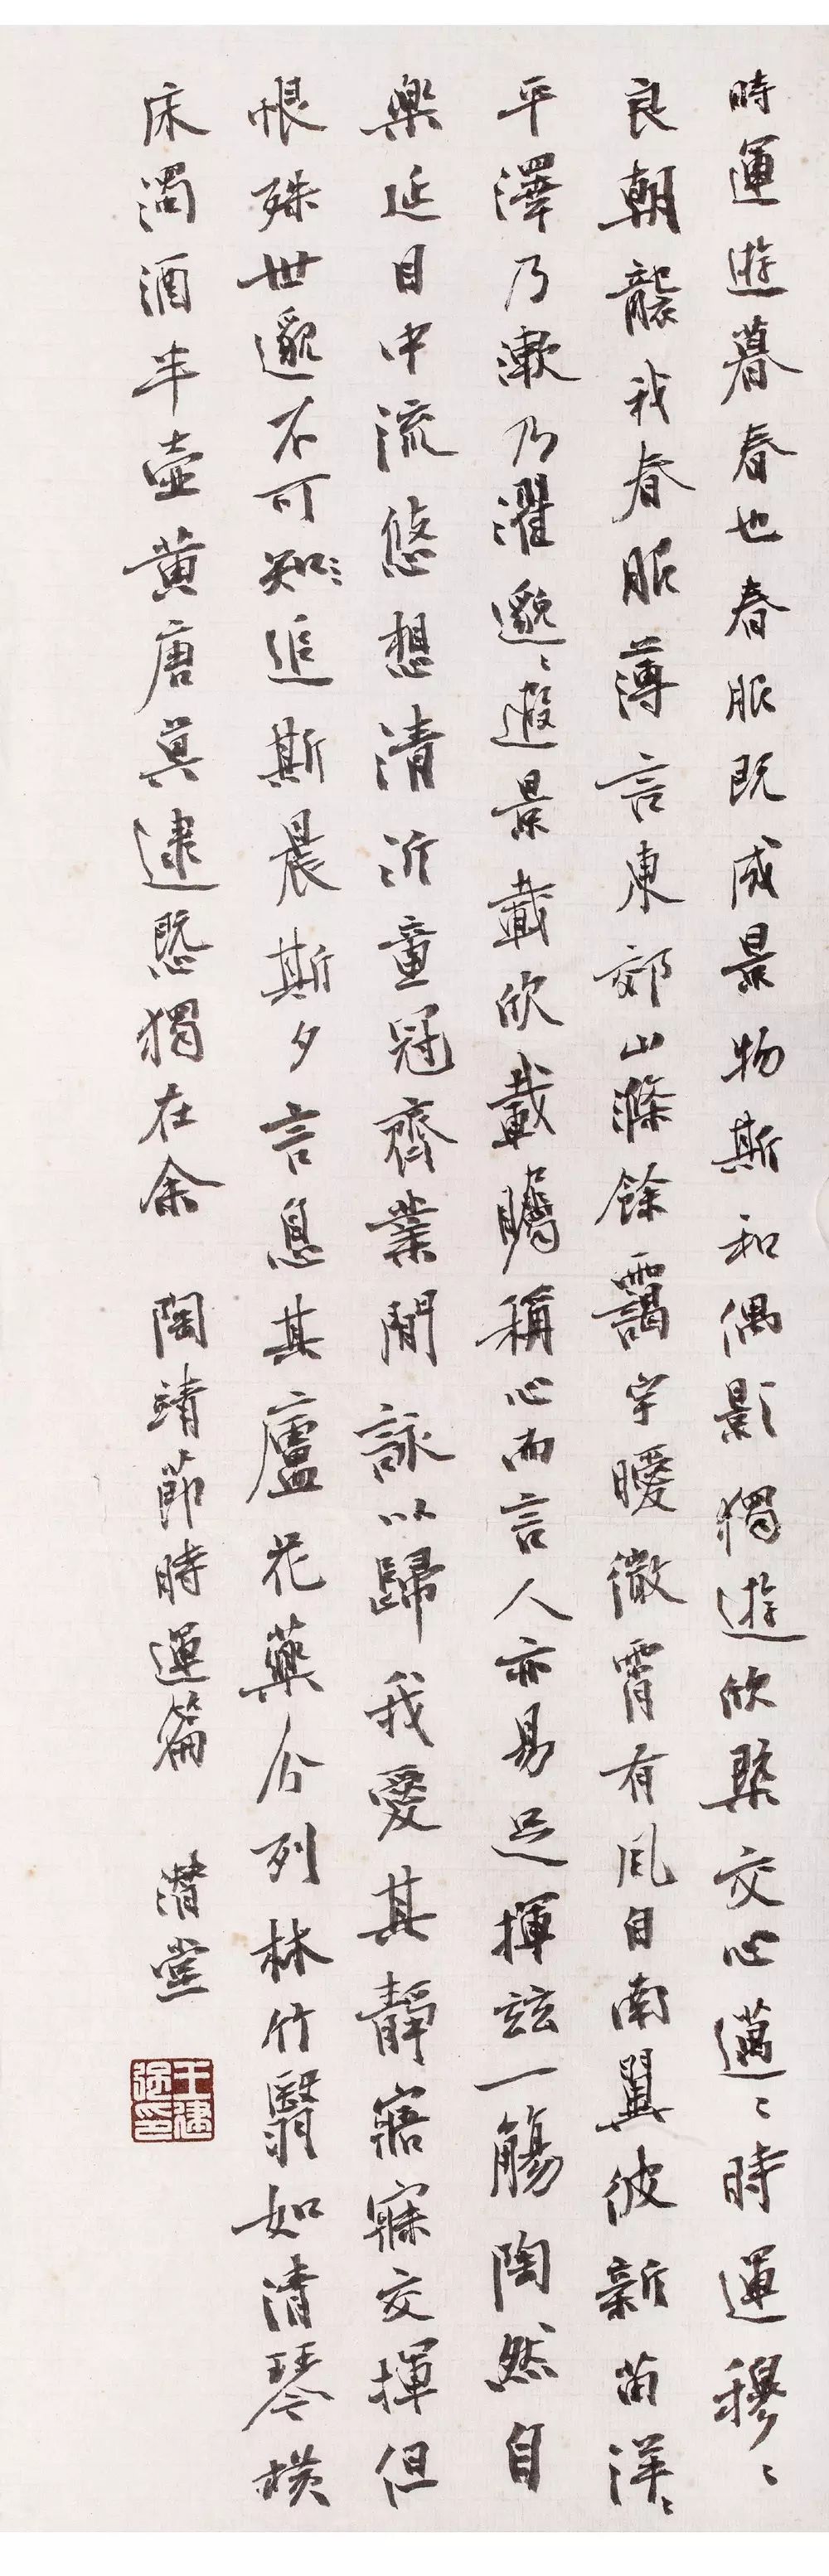 時運遊暮春也春服既成景物斯和偶影獨遊欣槩交心邁〻時運穆〻
良朝襲我春服薄言東郊山滌餘靄宇曖微霄有風自南翼彼新苗洋〻
平澤乃漱乃濯邈〻遐景載欣載矚稱心而言人亦易足揮茲一觴陶然自
樂延目中流悠想清沂童冠齊業閒詠以歸我愛其靜寤寐交揮但
恨殊世邈不可知〻追斯晨斯夕言息其廬花藥分列林竹翳如清琴横
床濁酒半壺黄唐莫逮慨獨在余 陶靖節時運篇 潛堂